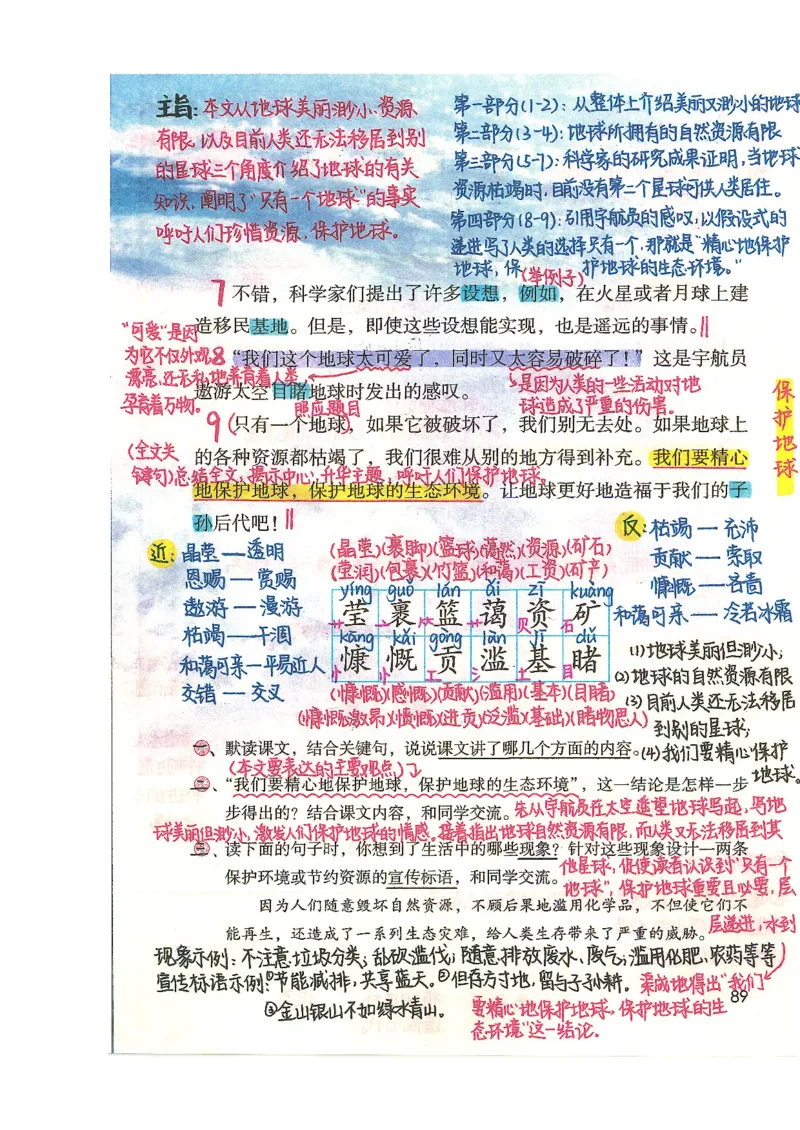 主旨：本文从地球美丽渺小、资源
有限，以及目前人类还无法移居到别
的星球三个角度介绍了地球的有关
知识，阐明了“只有一个地球”的事实
呼吁人们珍惜资源，保护地球。
第一部分(1-2)：从整体上介绍美丽又渺小的地球
第二部分(3-4)：地球所拥有的自然资源有限
第三部分(5-7)：科学家的研究成果证明，当地球
资源枯竭时，目前没有第二个星球可供人类居住。
第四部分(8-9)：引用宇航员的感叹，以假设式的
递进写了人类的选择只有一个，那就是“精心地保护
地球，保护地球的生态环境。”
(举例子)
7 不错，科学家们提出了许多设想，例如，在火星或者月球上建
造移民基地。但是，即使这些设想能实现，也是遥远的事情。‖
“可爱”是因
为它不仅外观
漂亮，还无私地养育着人类，
孕育着万物。
8 “我们这个地球太可爱了，同时又太容易破碎了！”这是宇航员
遨游太空目睹地球时发出的感叹。
是因为人类的一些活动对地
球造成了严重的伤害。
照应题目
9 (只有一个地球)，如果它被破坏了，我们别无去处。如果地球上
的各种资源都枯竭了，我们很难从别的地方得到补充。我们要精心
(全文关
键句)总结全文，揭示中心，升华主题，呼吁人们保护地球。
地保护地球，保护地球的生态环境。让地球更好地造福于我们的子
孙后代吧！‖
保护地球
近：晶莹——透明
恩赐——赏赐
遨游——漫游
枯竭——干涸
和蔼可亲—平易近人
交错——交叉
(晶莹)(裹脚)(篮球)(蔼然)(资源)(矿石)
(莹润)(包裹)(竹篮)(和蔼)(工资)(矿产)
yíng guǒ lán ǎi zī kuàng
莹 裹 篮 蔼 资 矿
艹 亠 ⺮ 艹 贝 石
kāng kǎi gòng làn jī dǔ
慷 慨 贡 滥 基 睹
忄 忄 工 氵 土 目
(慷慨)(感慨)(贡献)(滥用)(基本)(目睹)
(慷慨激昂)(愤慨)(进贡)(泛滥)(基础)(睹物思人)
反：枯竭——充沛
贡献——索取
慷慨——吝啬
和蔼可亲——冷若冰霜
(1)地球美丽但渺小；
(2)地球的自然资源有限
(3)目前人类还无法移居
到别的星球；
(4)我们要精心保护
地球。
一、默读课文，结合关键句，说说课文讲了哪几个方面的内容。
(本文要表达的主要观点)
二、“我们要精心地保护地球，保护地球的生态环境”，这一结论是怎样一步
步得出的？结合课文内容，和同学交流。
先从宇航员在太空遥望地球写起，写地
球美丽但渺小，激发人们保护地球的情感。接着指出地球自然资源有限，而人类又无法移居到其
三、读下面的句子时，你想到了生活中的哪些现象？针对这些现象设计一两条
保护环境或节约资源的宣传标语，和同学交流。
他星球，促使读者认识到“只有一个
地球”，保护地球重要且必要，层
因为人们随意毁坏自然资源，不顾后果地滥用化学品，不但使它们不
能再生，还造成了一系列生态灾难，给人类生存带来了严重的威胁。
层递进，水到
现象示例：不注意垃圾分类；乱砍滥伐；随意排放废水、废气；滥用化肥、农药等等
宣传标语示例：①节能减排，共享蓝天。②但存方寸地，留与子孙耕。
③金山银山不如绿水青山。
渠成地得出“我们
要精心地保护地球，保护地球的生
态环境”这一结论。
89